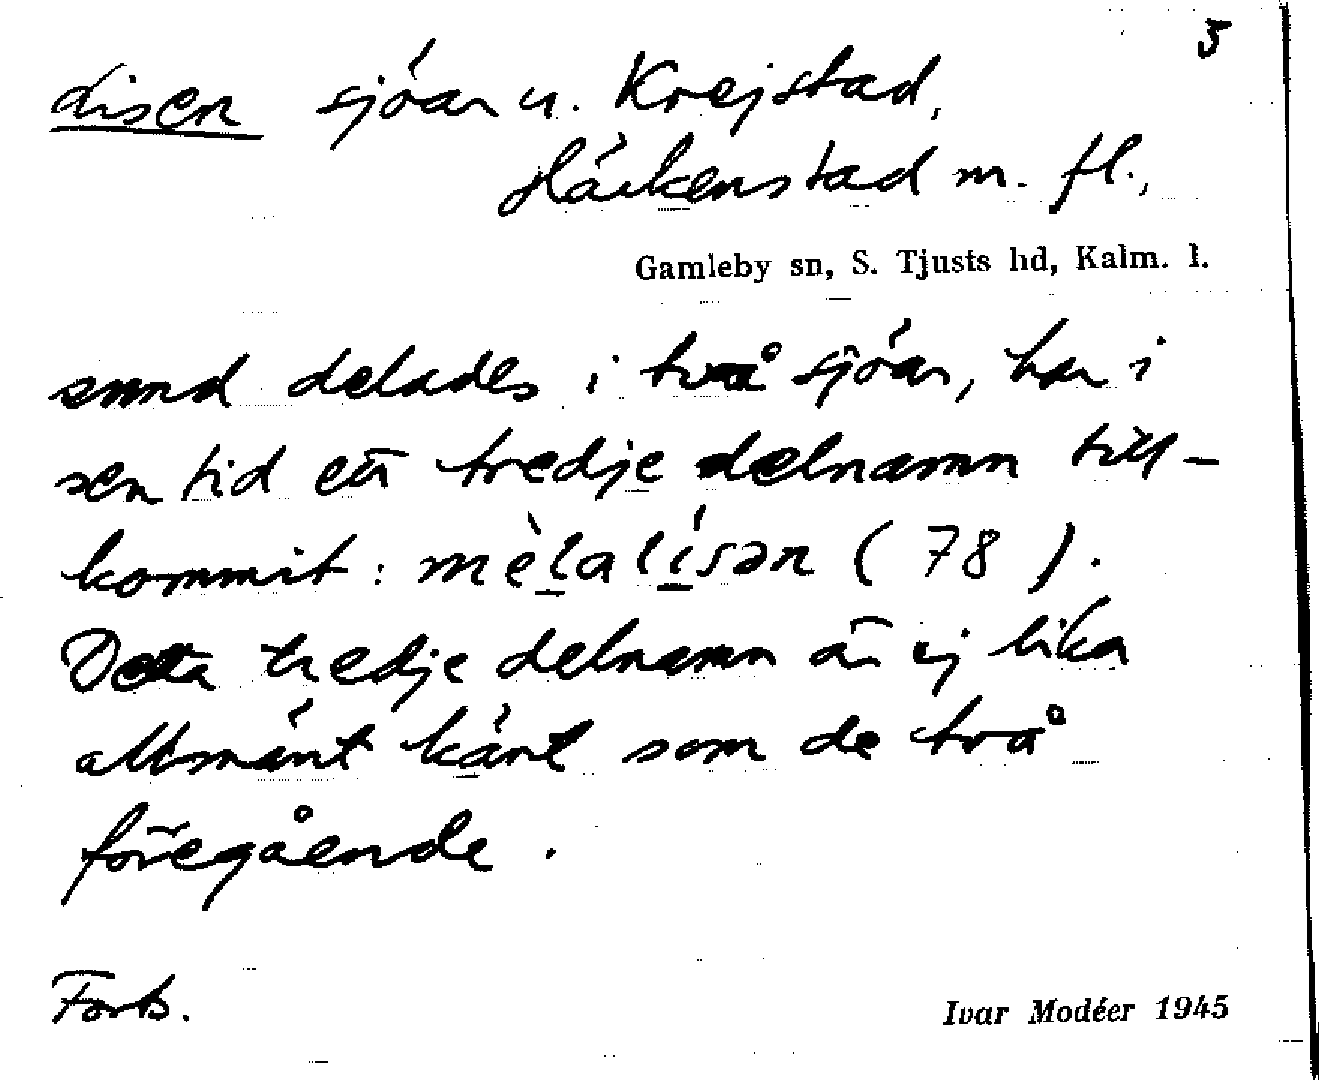 5
disen sjöar u. Krejstad,
Häckenstad m. fl.,
Gamleby sn, S. Tjusts hd, Kalm. l.
sund delades i två sjöar, har i
sen tid ett tredje delnamn till-
kommit: mèlalísən (78).
Detta tredje delnamn är ej lika
allmänt känt som de två
föregående.
Forts.
Ivar Modéer 1945